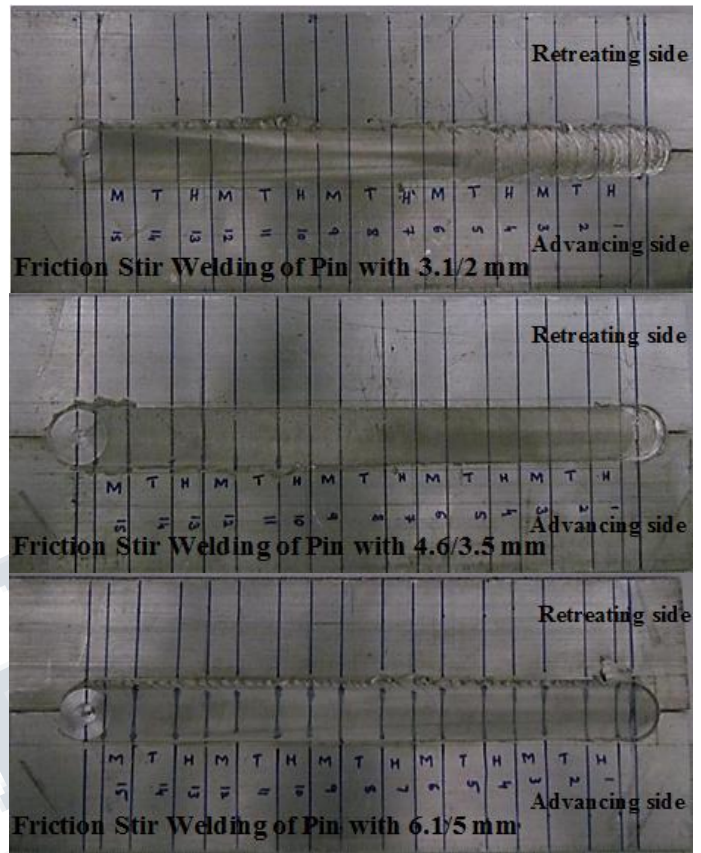 Retreating side
M T H M T H M T H M T H M T H
15 14 13 12 11 10 9 8 7 6 5 4 3 2 1
Advancing side
Friction Stir Welding of Pin with 3.1/2 mm
Retreating side
M T H M T H M T H M T H M T H
15 14 13 12 11 10 9 8 7 6 5 4 3 2 1
Advancing side
Friction Stir Welding of Pin with 4.6/3.5 mm
Retreating side
M T H M T H M T H M T H M T H
15 14 13 12 11 10 9 8 7 6 5 4 3 2 1
Advancing side
Friction Stir Welding of Pin with 6.1/5 mm